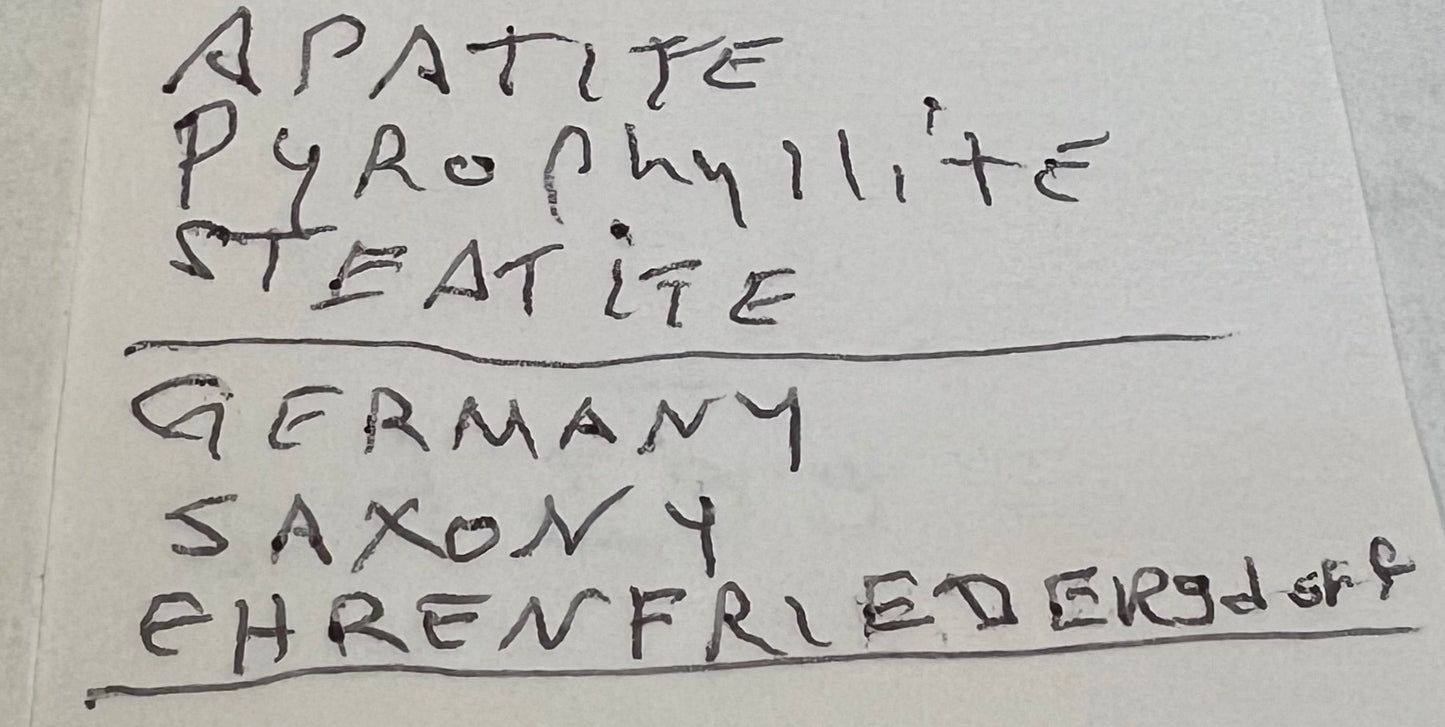 APATITE
PyRophyllitE
STEATiTE
GERMANY
SAXONY
EHRENFRIEDERsdorf